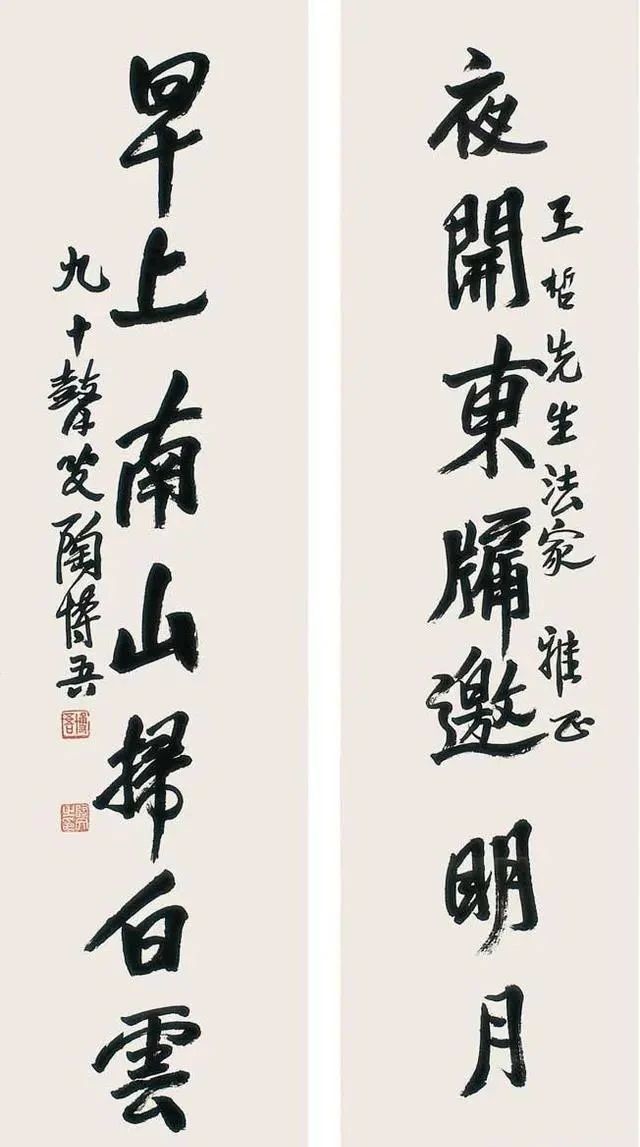 夜開東牖邀明月
王哲先生法家 雅正
早上南山掃白雲
九十聾叟陶博吾